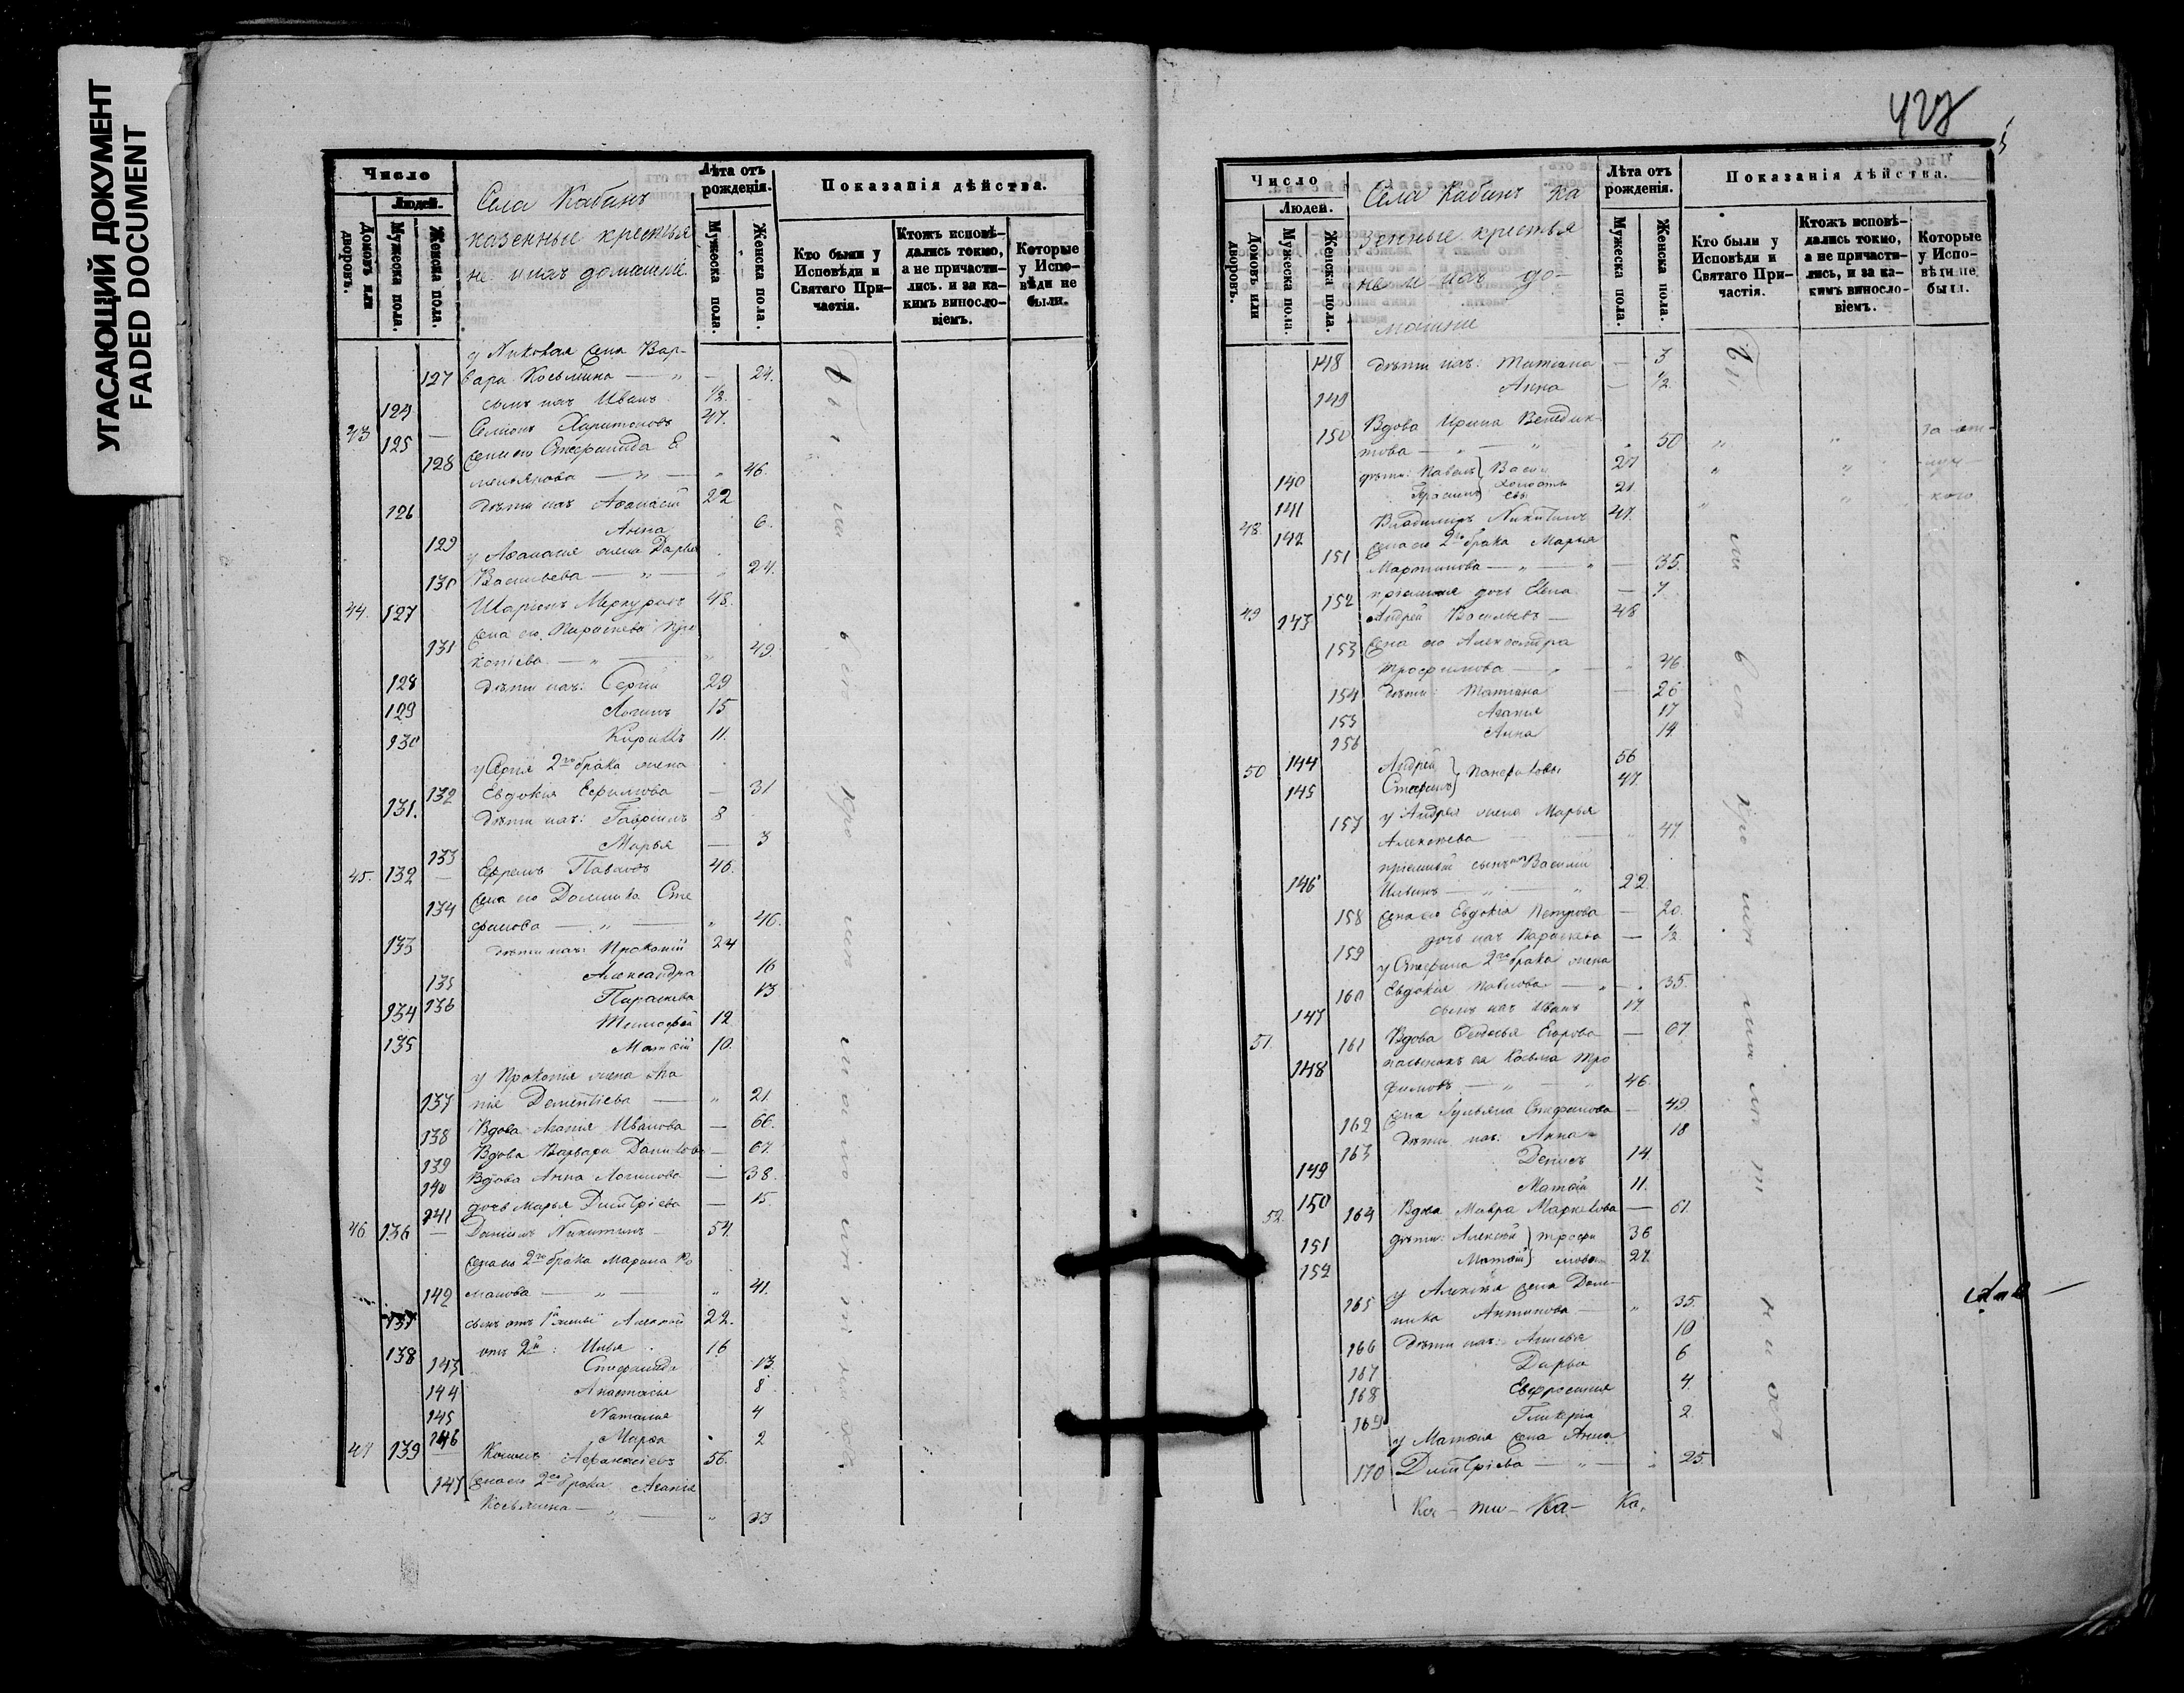 УГАСАЮЩИЙ ДОКУМЕНТ
FADED DOCUMENT
Число
Людей.
Домовъ или дворовъ.
Мужеска пола.
Женска пола.
Села Кабанъ
казенные крестья
не и ихъ домашніе
Лѣта отъ рожденія.
Мужеска пола.
Женска пола.
Показанія дѣйства.
Кто были у Исповѣди и Святаго При-
частія.
Ктожъ исповѣ-
дались токмо,
а не причасти-
лись. и за ка-
кимъ винosло-
віемъ.
Которые
у Испо-
вѣди не
были.
у Николая жена Вар-
127 вара Косьмина — „ — 24.
124 сынъ ихъ Иванъ 1/2.
43 125 Семіонъ Харитоновъ 47.
128 жена его Стефанида Е
мельянова — „ — „ 46.
126 дѣти ихъ Аѳанасій 22
129 Анна 6.
у Аѳанасія жена Дарья
130 Васильева — „ — „ 24.
44. 127 Иларіонъ Меркурьевъ 48.
131 жена его Параскева Про
копіева — „ — „ 49.
128 дѣти ихъ: Сергій 29
129 Логинъ 15
130 Кириллъ 11.
у Сергія 2го брака жена
132 Евдокія Ефимова — 31
131. дѣти ихъ: Гавріилъ 8
133 Марья — 3
45. 132 Ефремъ Павловъ 46.
134 жена его Домника Сте
фанова — „ — „ 46.
133 дѣти ихъ: Прокопій 24
135 Александра 16
136 Параскева 13
134 Тимофей 12.
135 Матѳій 10.
у Прокопія жена Ага
137 пія Дементіева — „ 21
138 Вдова Агапія Иванова — 66.
139 Вдова Варвара Данилова — 67.
140 Вдова Анна Логинова — 38.
141 дочь Марья Димитріева — 15.
46 136 Даніилъ Никитинъ — 54.
жена его 2го брака Марина Ро
142 манова — „ — „ 41.
137 сынъ отъ 1й жены Алексій 22.
138 отъ 2й: Илья 16
143 Стефанида 13.
144 Анастасія 8
145 Наталія 4
146 Марѳа 2
47 139 Аѳанасіевъ 56.
147 жена его 2го брака Агапія
Косьмина — „ — „ 33
Были
всѣ
428
Число
Людей.
Домовъ или дворовъ.
Мужеска пола.
Женска пола.
Села Кабанъ ка
зенные крестья
не и ихъ до-
машніе
Лѣта отъ рожденія.
Мужеска пола.
Женска пола.
Показанія дѣйства.
Кто были у
Исповѣди и
Святаго При-
частія.
Ктожъ исповѣ-
дались токмо,
а не причасти-
лись, и за ка-
кимъ винocло-
віемъ.
Которые
у Испо-
вѣди не
были.
148 дѣти ихъ: Татіана — 3
149 Анна — 1/2
150 Вдова Ирина Венедик-
това — „ — „ „ 50 „ „ за от-
140 дѣти: Павелъ 27 „ „ луч-
141 Герасимъ 21 „ „ кою
48. 142 Владимиръ Никитинъ 47.
жена его 2го брака Марья
151 Мартинова — „ — „ — 35.
152 пріемная дочь Елена — 7
49 143 Андрей Васильевъ — 48
153 жена его Александра
Трофимова — „ — „ 46
154 дѣти: Татіана — 26
155 Агапія 17
156 Анна 14
50 144 Андрей } Панфиловы 56
145 Стефанъ 47.
157 у Андрея жена Марья
Алексѣева — „ 47.
пріемный сынъ ихъ Василій
146 Ильинъ — „ — „ 22.
158 жена его Евдокія Петрова — 20.
159 дочь ихъ Параскева — 1/2.
у Стефана 2го брака жена
160 Евдокія Павлова — „ — „ 35.
147 сынъ ихъ Иванъ 17.
51. 161 Вдова Ѳеодосья Егорова — 67
148 пасынокъ ея Косьма Тро
фимовъ — „ — „ 46.
162 жена Ульяна Стефанова — 49.
163 дѣти ихъ: Анна 18
149 Денисъ 14.
150 Матѳій 11.
52. 164 Вдова Мавра Маркелова — 61.
151 дѣти: Алексѣй } Трофи 36
152 Матѳій } мовы 27.
у Алексѣя жена Дом-
165 ника Антипова — „ 35.
166 дѣти ихъ: Анисья 10
167 Дарья 6
168 Евфросинія 4.
169 Гликерія 2.
у Матѳія жена Анна
170 Димитріева — „ — „ 25.
Ка- ти- Ка- Ка.